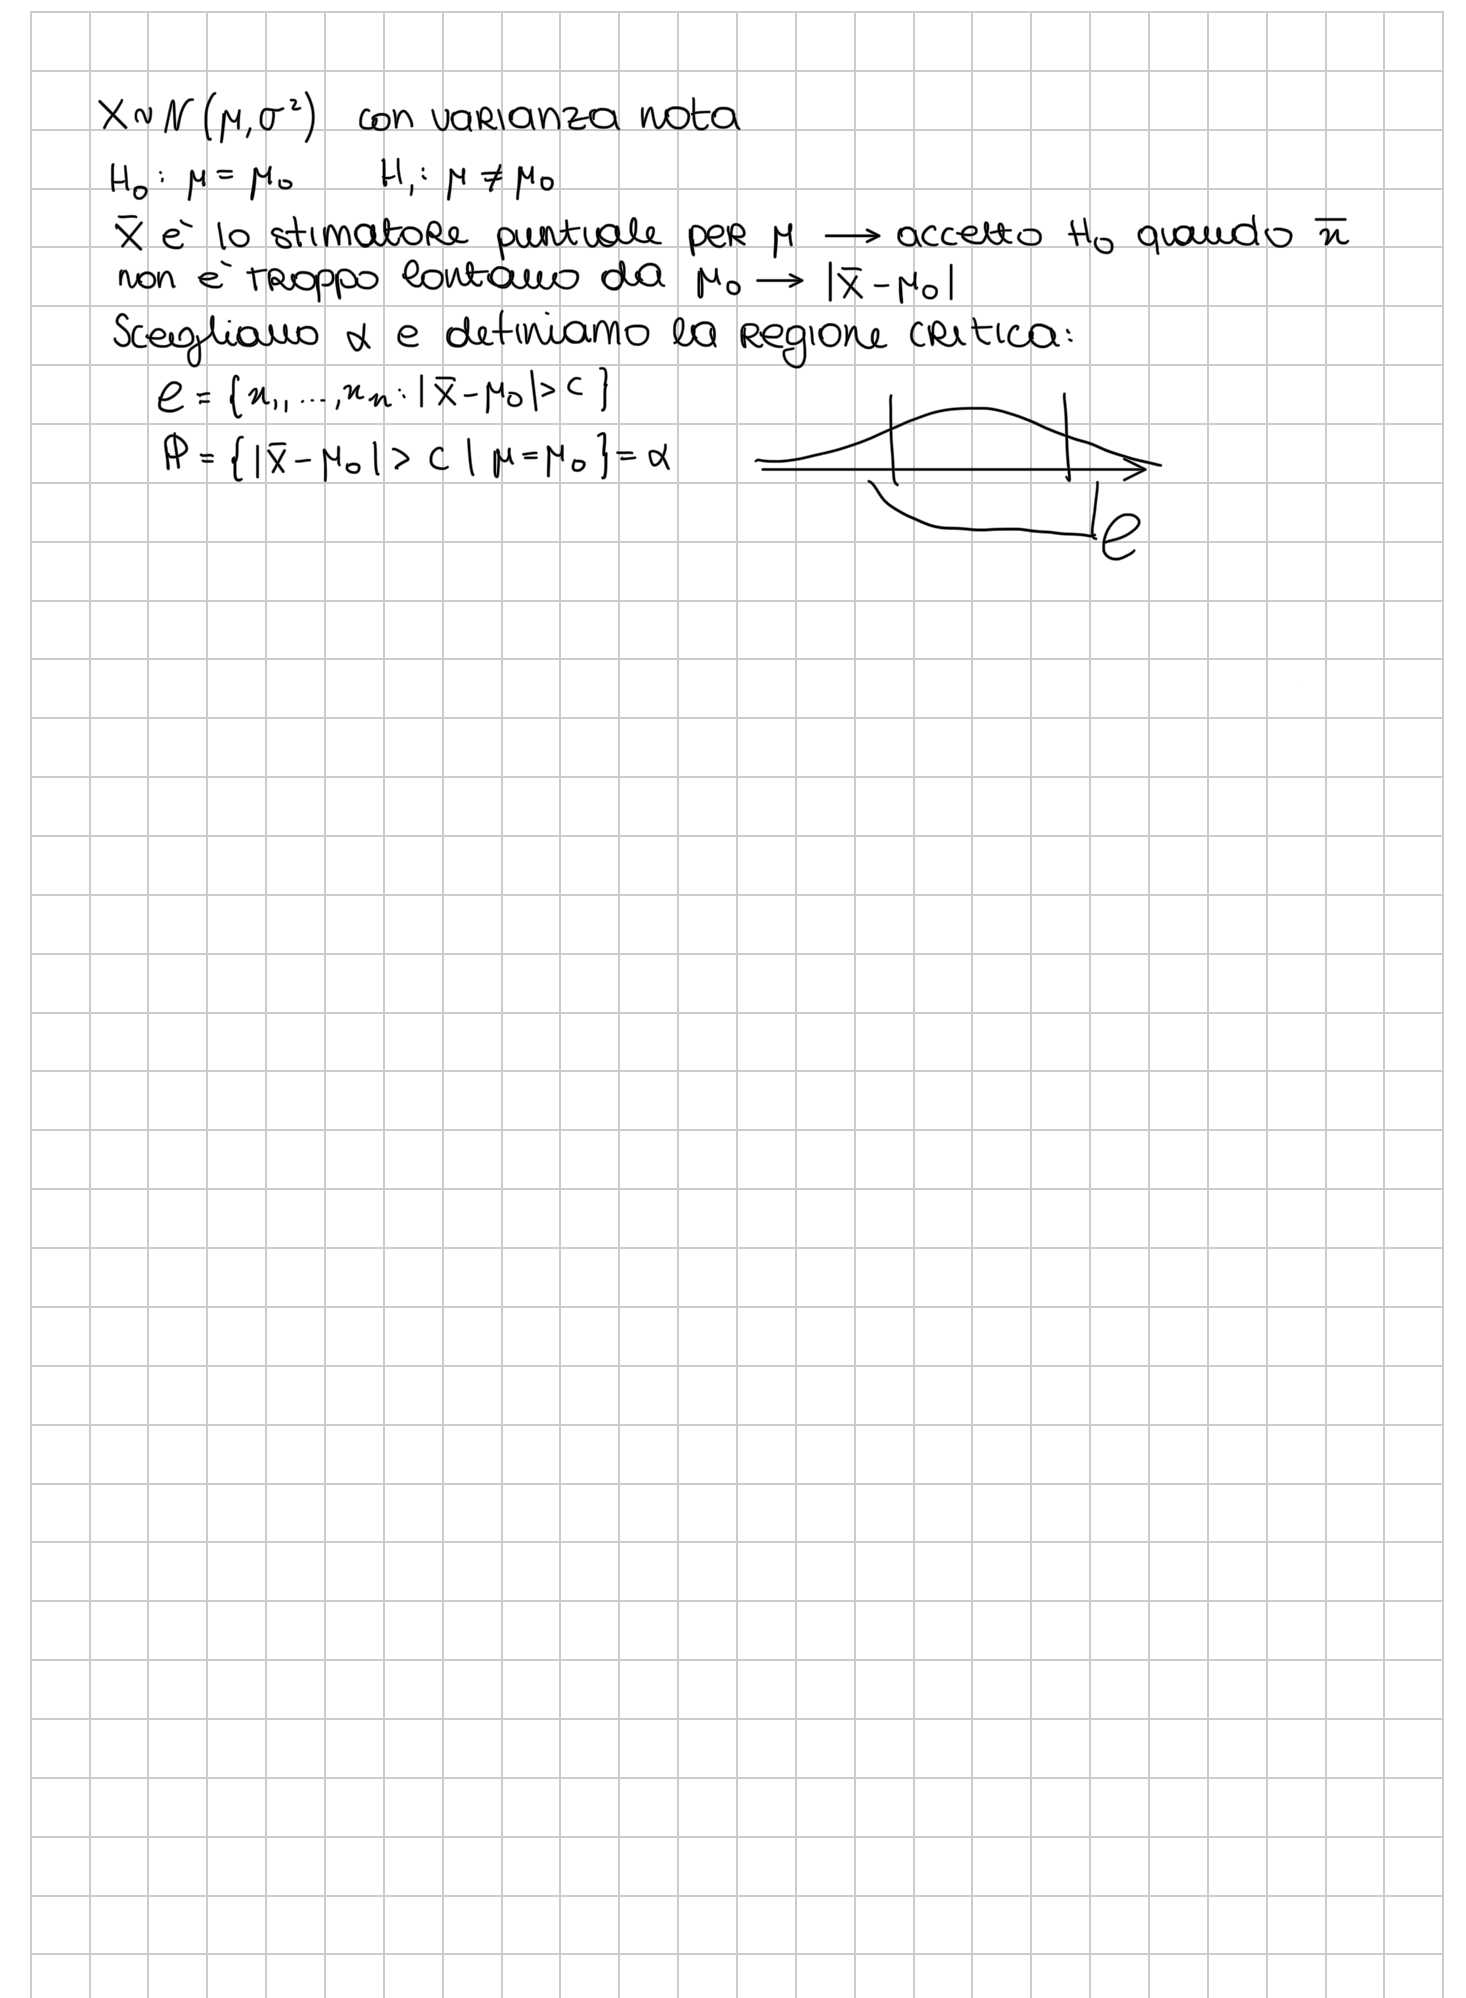 X~N(μ,σ²) con varianza nota
H₀: μ = μ₀ H₁: μ ≠ μ₀
X̄ è lo stimatore puntuale per μ → accetto H₀ quando x̄
non è troppo lontano da μ₀ → |X̄-μ₀|
Scegliamo α e definiamo la regione critica:
C = {x₁,...,xₙ: |X̄-μ₀|> c}
ℙ = {|X̄-μ₀| > c | μ=μ₀} = α
C